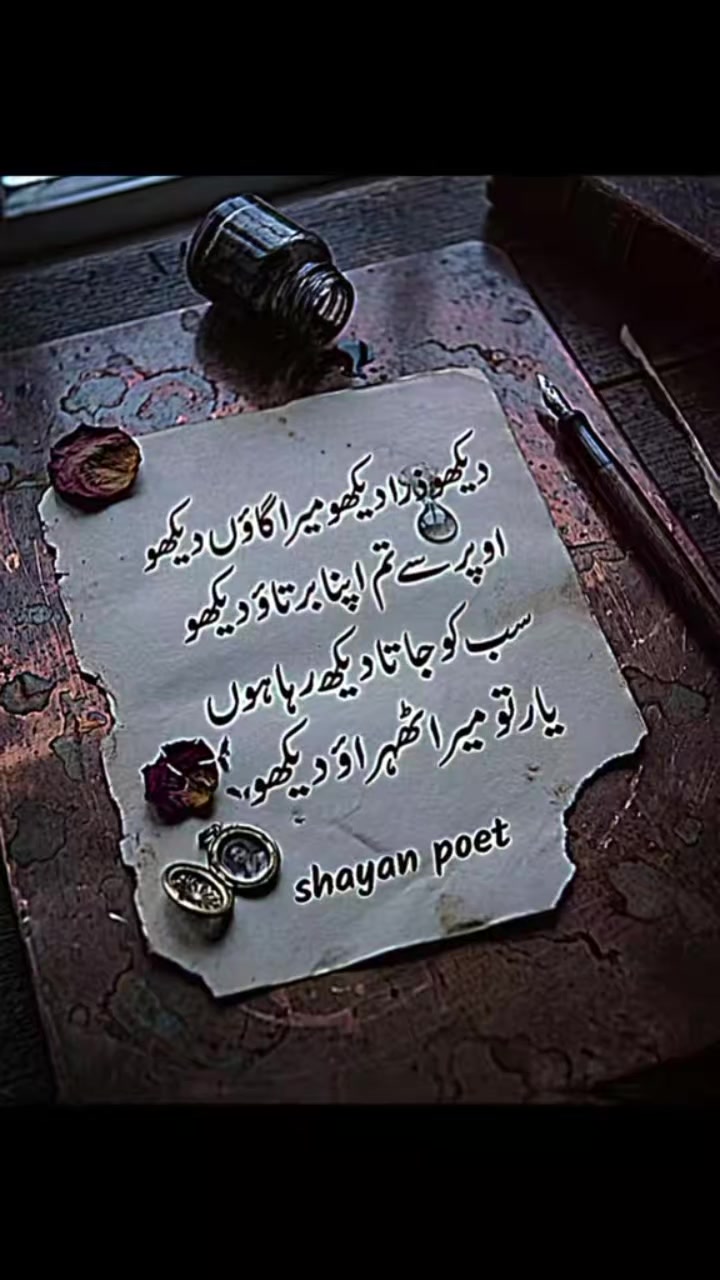 دیکھو ذرا دیکھو میرا گاؤں دیکھو
اوپر سے تم اپنا برتاؤ دیکھو
سب کو جاتا دیکھ رہا ہوں
یار تو میرا ٹھہراؤ دیکھو..
shayan poet